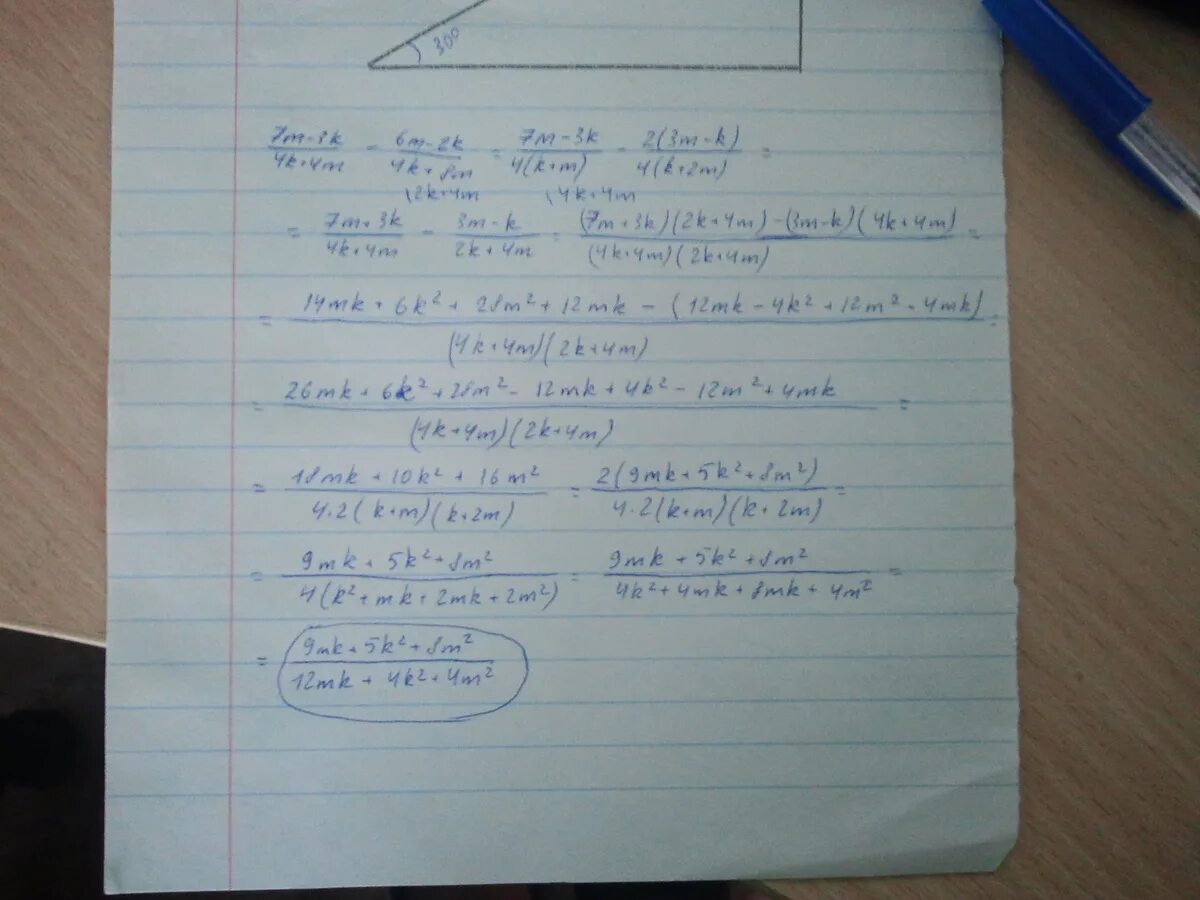 30°
7m-3k/4k+4m - 6m-2k/4k+8m = 7m-3k/4(k+m) - 2(3m-k)/4(k+2m) =
\2k+4m \4k+4m
= 7m+3k/4k+4m - 3m-k/2k+4m = (7m+3k)(2k+4m)-(3m-k)(4k+4m)/(4k+4m)(2k+4m) =
= 14mk+6k²+28m²+12mk-(12mk-4k²+12m²-4mk)/(4k+4m)(2k+4m) =
= 26mk+6k²+28m²-12mk+4k²-12m²+4mk/(4k+4m)(2k+4m) =
= 18mk+10k²+16m²/4·2(k+m)(k+2m) = 2(9mk+5k²+8m²)/4·2(k+m)(k+2m) =
= 9mk+5k²+8m²/4(k²+mk+2mk+2m²) = 9mk+5k²+8m²/4k²+4mk+8mk+4m² =
= 9mk+5k²+8m²/12mk+4k²+4m²